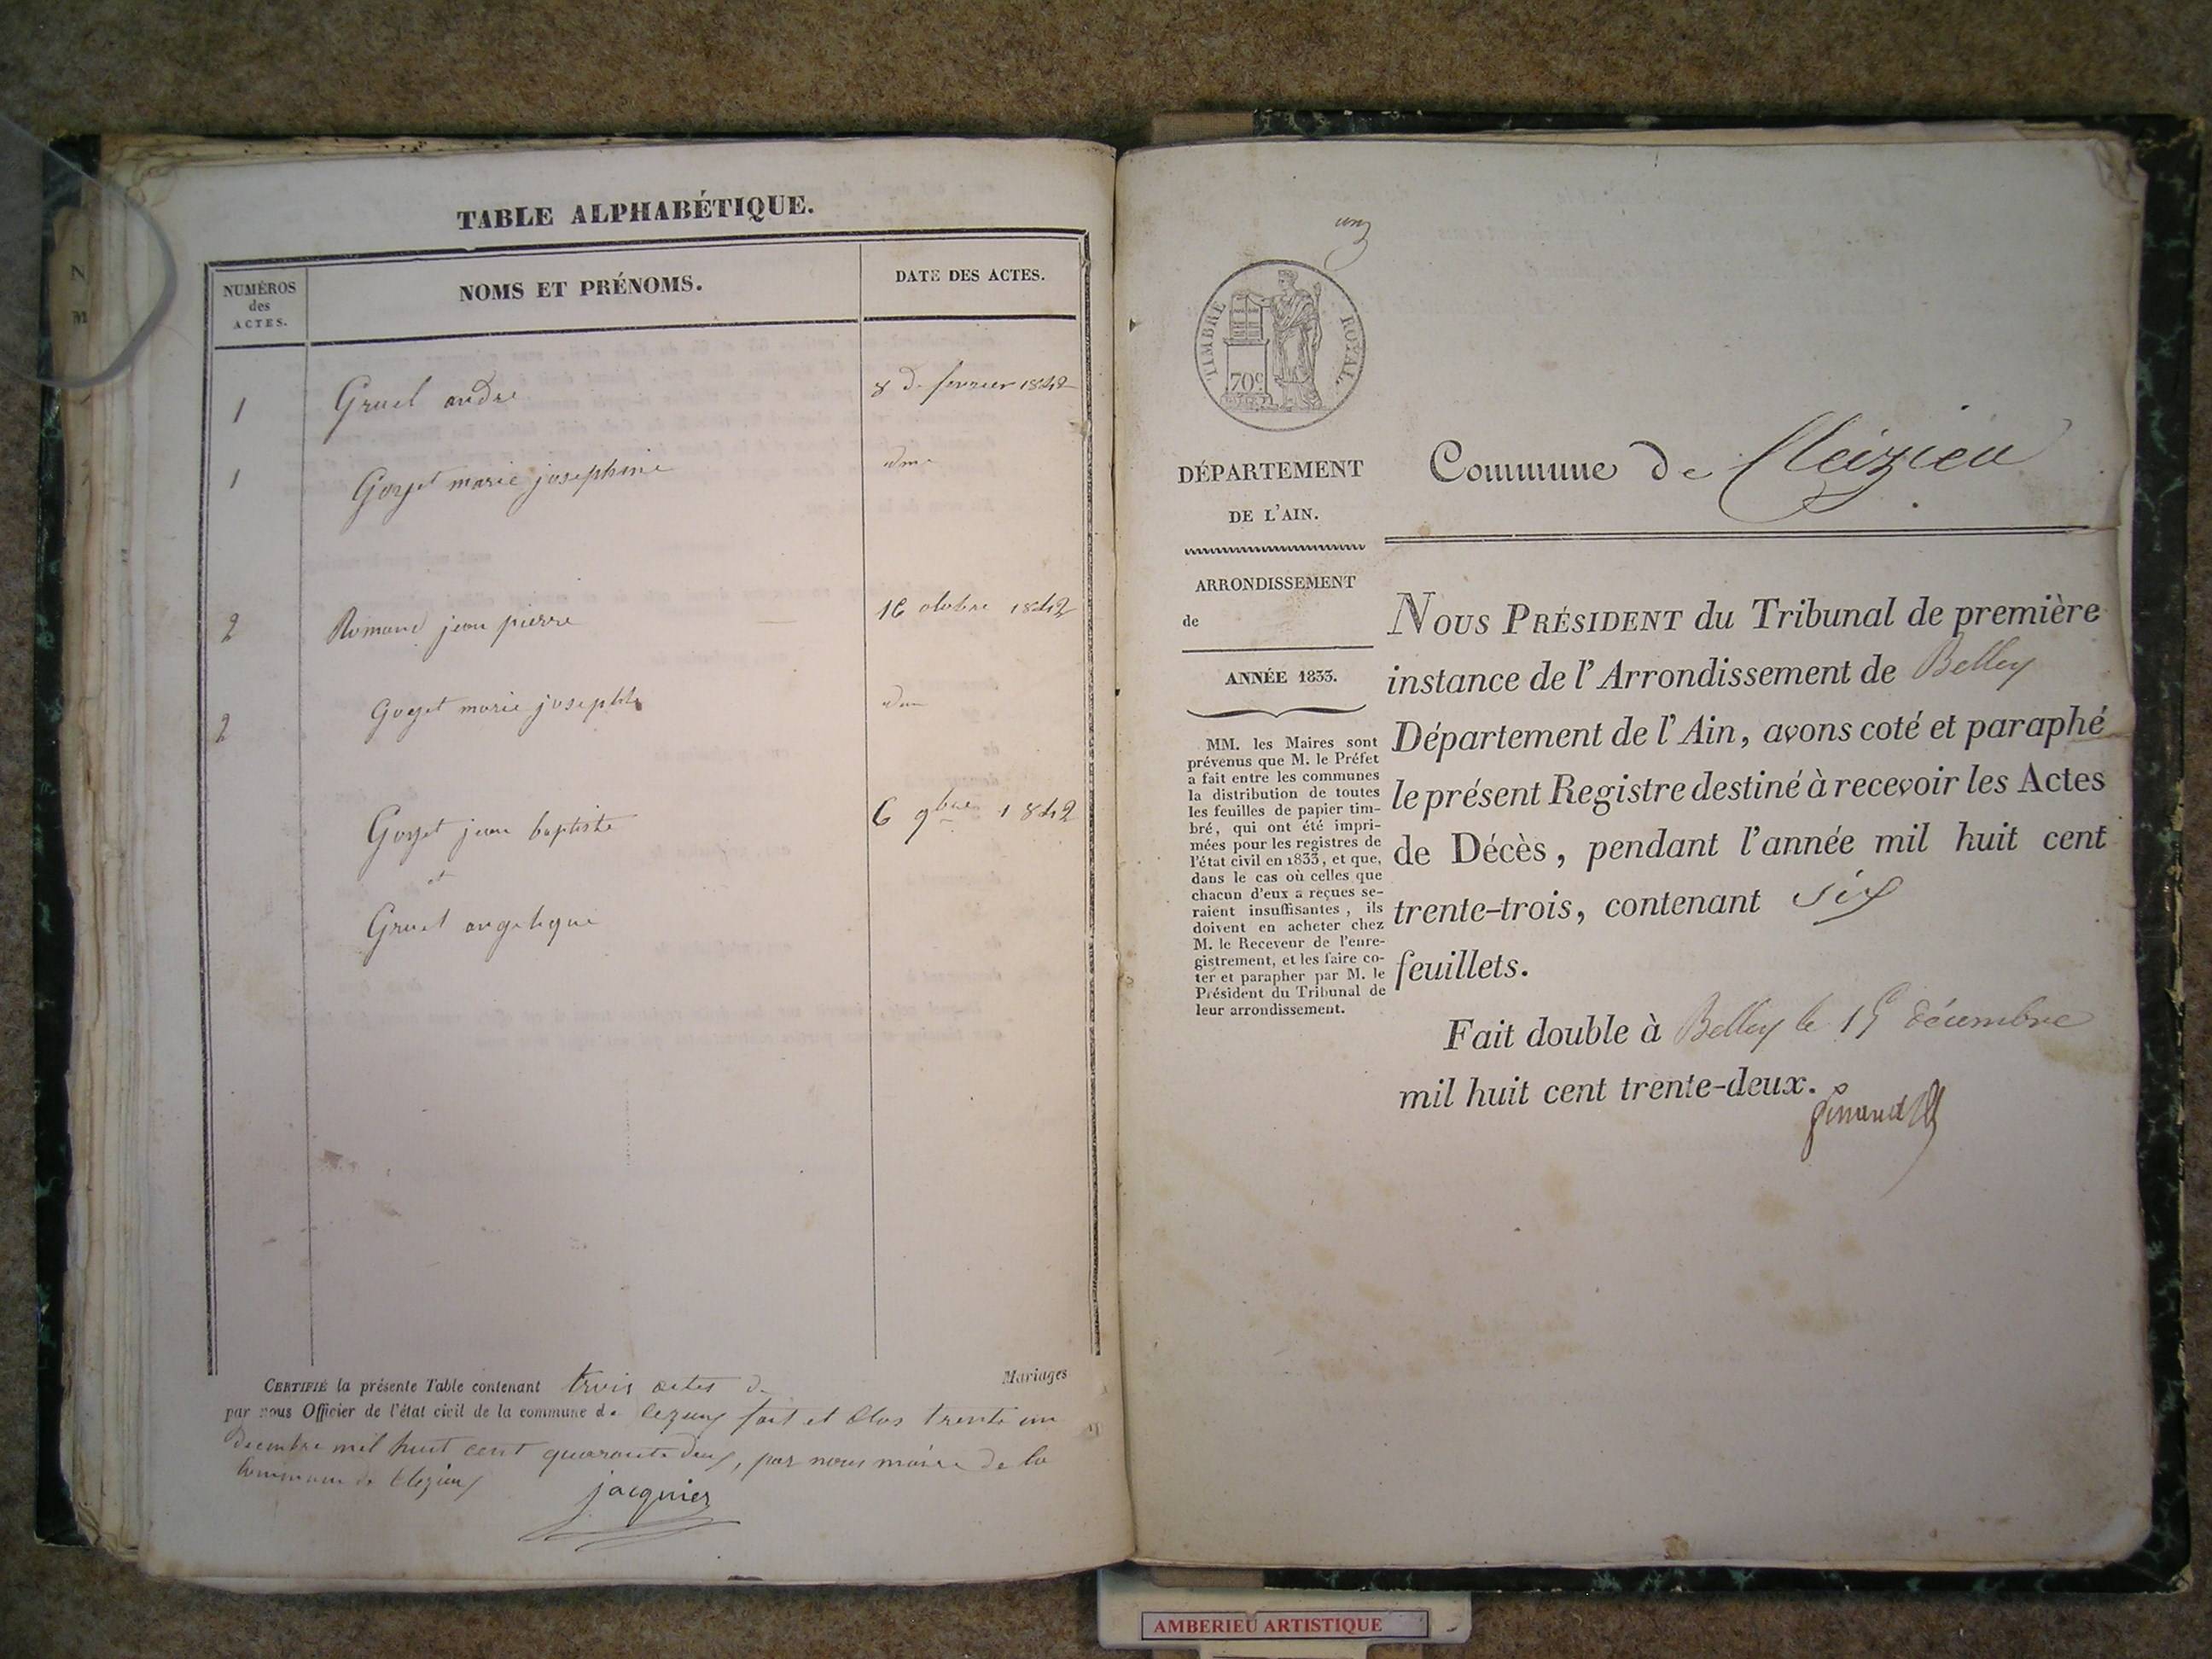 TABLE ALPHABÉTIQUE.
NUMÉROS
des
ACTES.
NOMS ET PRÉNOMS.
DATE DES ACTES.
1 Gruel andre 8 de fevrier 1842
1 Goyet marie josephine
2 Romand jean pierre 16 otobre 1842
2 Goyet marie josephte
Goyet jean baptiste 6 9bre 1842
et
Gruel angelique
CERTIFIÉ la présente Table contenant trois actes de Mariages
par nous Officier de l'état civil de la commune de fait et Clos trente un
decembre mil huit cent quarante deux, par nous maire de la
Commune de
jacquier
TIMBRE ROYAL.
70c
DÉPARTEMENT
DE L'AIN.
ARRONDISSEMENT
de
ANNÉE 1833.
MM. les Maires sont
prévenus que M. le Préfet
a fait entre les communes
la distribution de toutes
les feuilles de papier tim-
bré, qui ont été impri-
mées pour les registres de
l'état civil en 1833, et que,
dans le cas où celles que
chacun d'eux a reçues se-
raient insuffisantes, ils
doivent en acheter chez
M. le Receveur de l'enre-
gistrement, et les faire co-
ter et parapher par M. le
Président du Tribunal de
leur arrondissement.
Commune de Cleizieu
NOUS PRÉSIDENT du Tribunal de première
instance de l'Arrondissement de Belley
Département de l'Ain, avons coté et paraphé
le présent Registre destiné à recevoir les Actes
de Décès, pendant l'année mil huit cent
trente-trois, contenant six
feuillets.
Fait double à Belley le 15 décembre
mil huit cent trente-deux.
AMBERIEU ARTISTIQUE